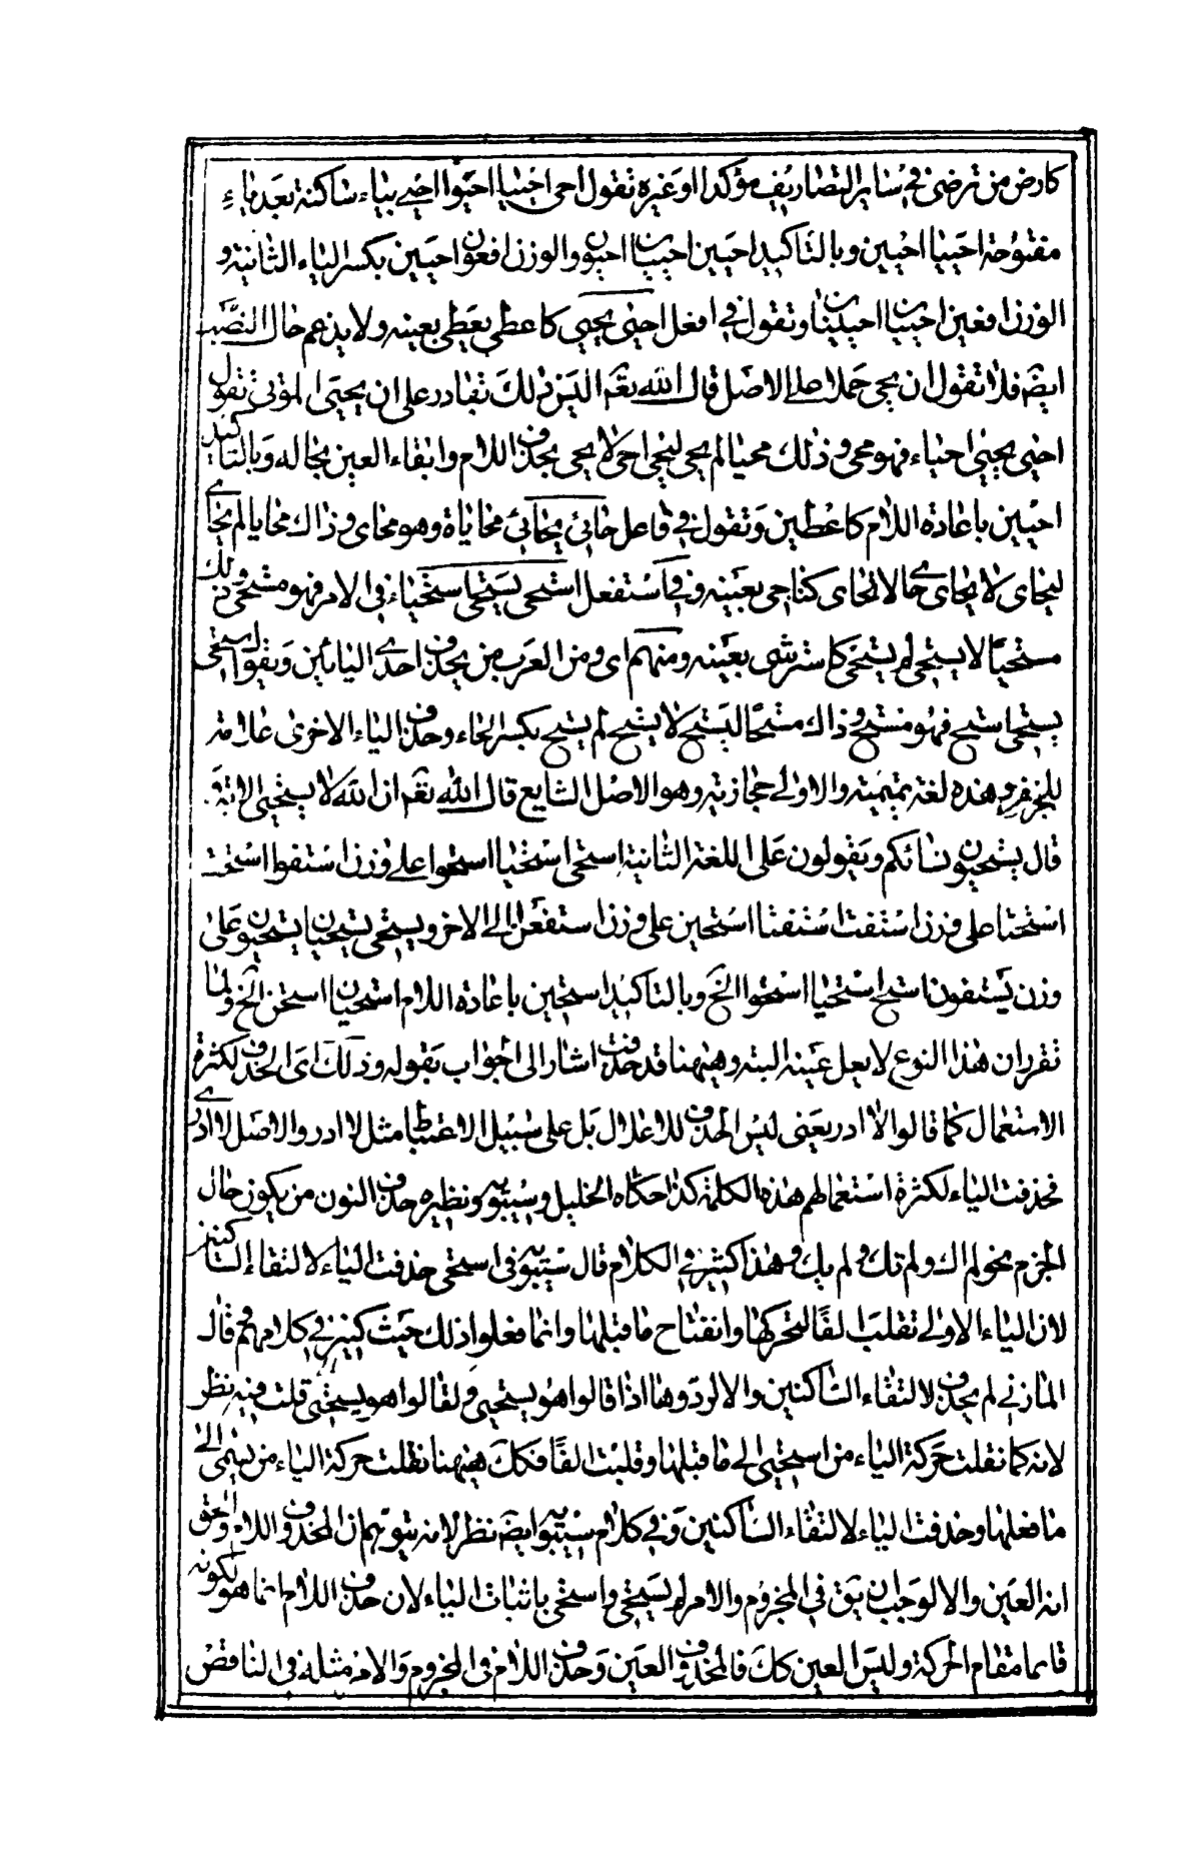 كارض من ترضى في سائر التصاريف مؤكدا او غيره تقول احى احييا احيوا احيى بياء ساكنة بعد ياء
مفتوحة احييا احيين وبالتاكيد احيين احييان احيون والوزن افعون احيين بكسر الياء الثانية و
الوزن افعين احييان احيينان وتقول في افعل احيى يحيى كاعطى يعطى بعينه ولا يدغم حال النصب
ايضا فلا تقول ان يحى حملا على الاصل قال الله تعم اليس ذلك بقادر على ان يحيى الموتى تقول
احيى يحيى احياء فهو محى وذلك محيا لم يحى ليحى احى لا يحى بحذف اللام وابقاء العين بحاله وبالتاكيد
احيين باعادة اللام كاعطين وتقول في فاعل حايى يحايى محاياة وهو محاى وذاك محايا لم يحاى
ليحاى لا يحاى حال لا يحاى كناجى بعينه وفي استفعل استحيى يستحيى استحياء في الامر فهو مستحى وذلك
مستحيا لا يستحى لم يستحى كاسترشى بعينه ومنهم اى ومن العرب من يحذف احدى اليائين ويقول استحى
يستحى استح فهو مستح وذاك مستحا ليستح لا يستح لم يستح بكسر الحاء وحذف الياء الاخرى علامة
للجزم وهذه لغة تميمية والاولى حجازية وهو الاصل الشايع قال الله تعم ان الله لا يستحيى الاية و
قال يستحيون نسائكم ويقولون على اللغة الثانية استحى استحيا استحوا على وزن استفوا استحت
استحتا على وزن استفت استفتا استحين على وزن استفعلن الى الاخر ويستحى يستحيان يستحون على
وزن يستفون استح استحيا استحوا الخ وبالتاكيد استحين باعادة اللام استحيان استحن الخ ولما
تقرر ان هذا النوع لا يعل عينه البتة وههنا قد حذفت اشار الى الجواب بقوله وذلك اى الحذف لكثرة
الاستعمال كما قالوا لا ادر يعنى ليس الحذف للاعلال بل على سبيل الاعتباط مثل لا ادر والاصل لا ادرى
فحذفت الياء لكثرة استعمالهم هذه الكلمة كذا حكاه الخليل وسيبويه ونظيره حذف النون من يكون حال
الجزم نحو لم اك ولم تك ولم يك وهذا كثير في الكلام قال سيبويه في استحى حذفت الياء لالتقاء الساكنين
لان الياء الاولى تقلب الفا لتحركها وانفتاح ما قبلها وانما فعلوا ذلك حيث كثير في كلامهم قال
المازنى لم يحذف لالتقاء الساكنين والا لردوها اذا قالوا هو يستحيى ولقالوا هو يستحيى قلت فيه نظر
لانه كما نقلت حركة الياء من استحيى الى ما قبلها وقلبت الفا فكك ههنا نقلت حركة الياء من يستحى الى
ما قبلها وحذفت الياء لالتقاء الساكنين وفي كلام سيبويه ايضا نظر لانه يتوهم ان المحذوف اللام والحق
انه العين والا لوجب ان يبقى في المجزوم والامر لم يستحى واستحى باثبات الياء لان حذف اللام انما هو لكونه
قائما مقام الحركة وليس العين كك فالمحذوف العين وحذف اللام في المجزوم والامر مثله في الناقص